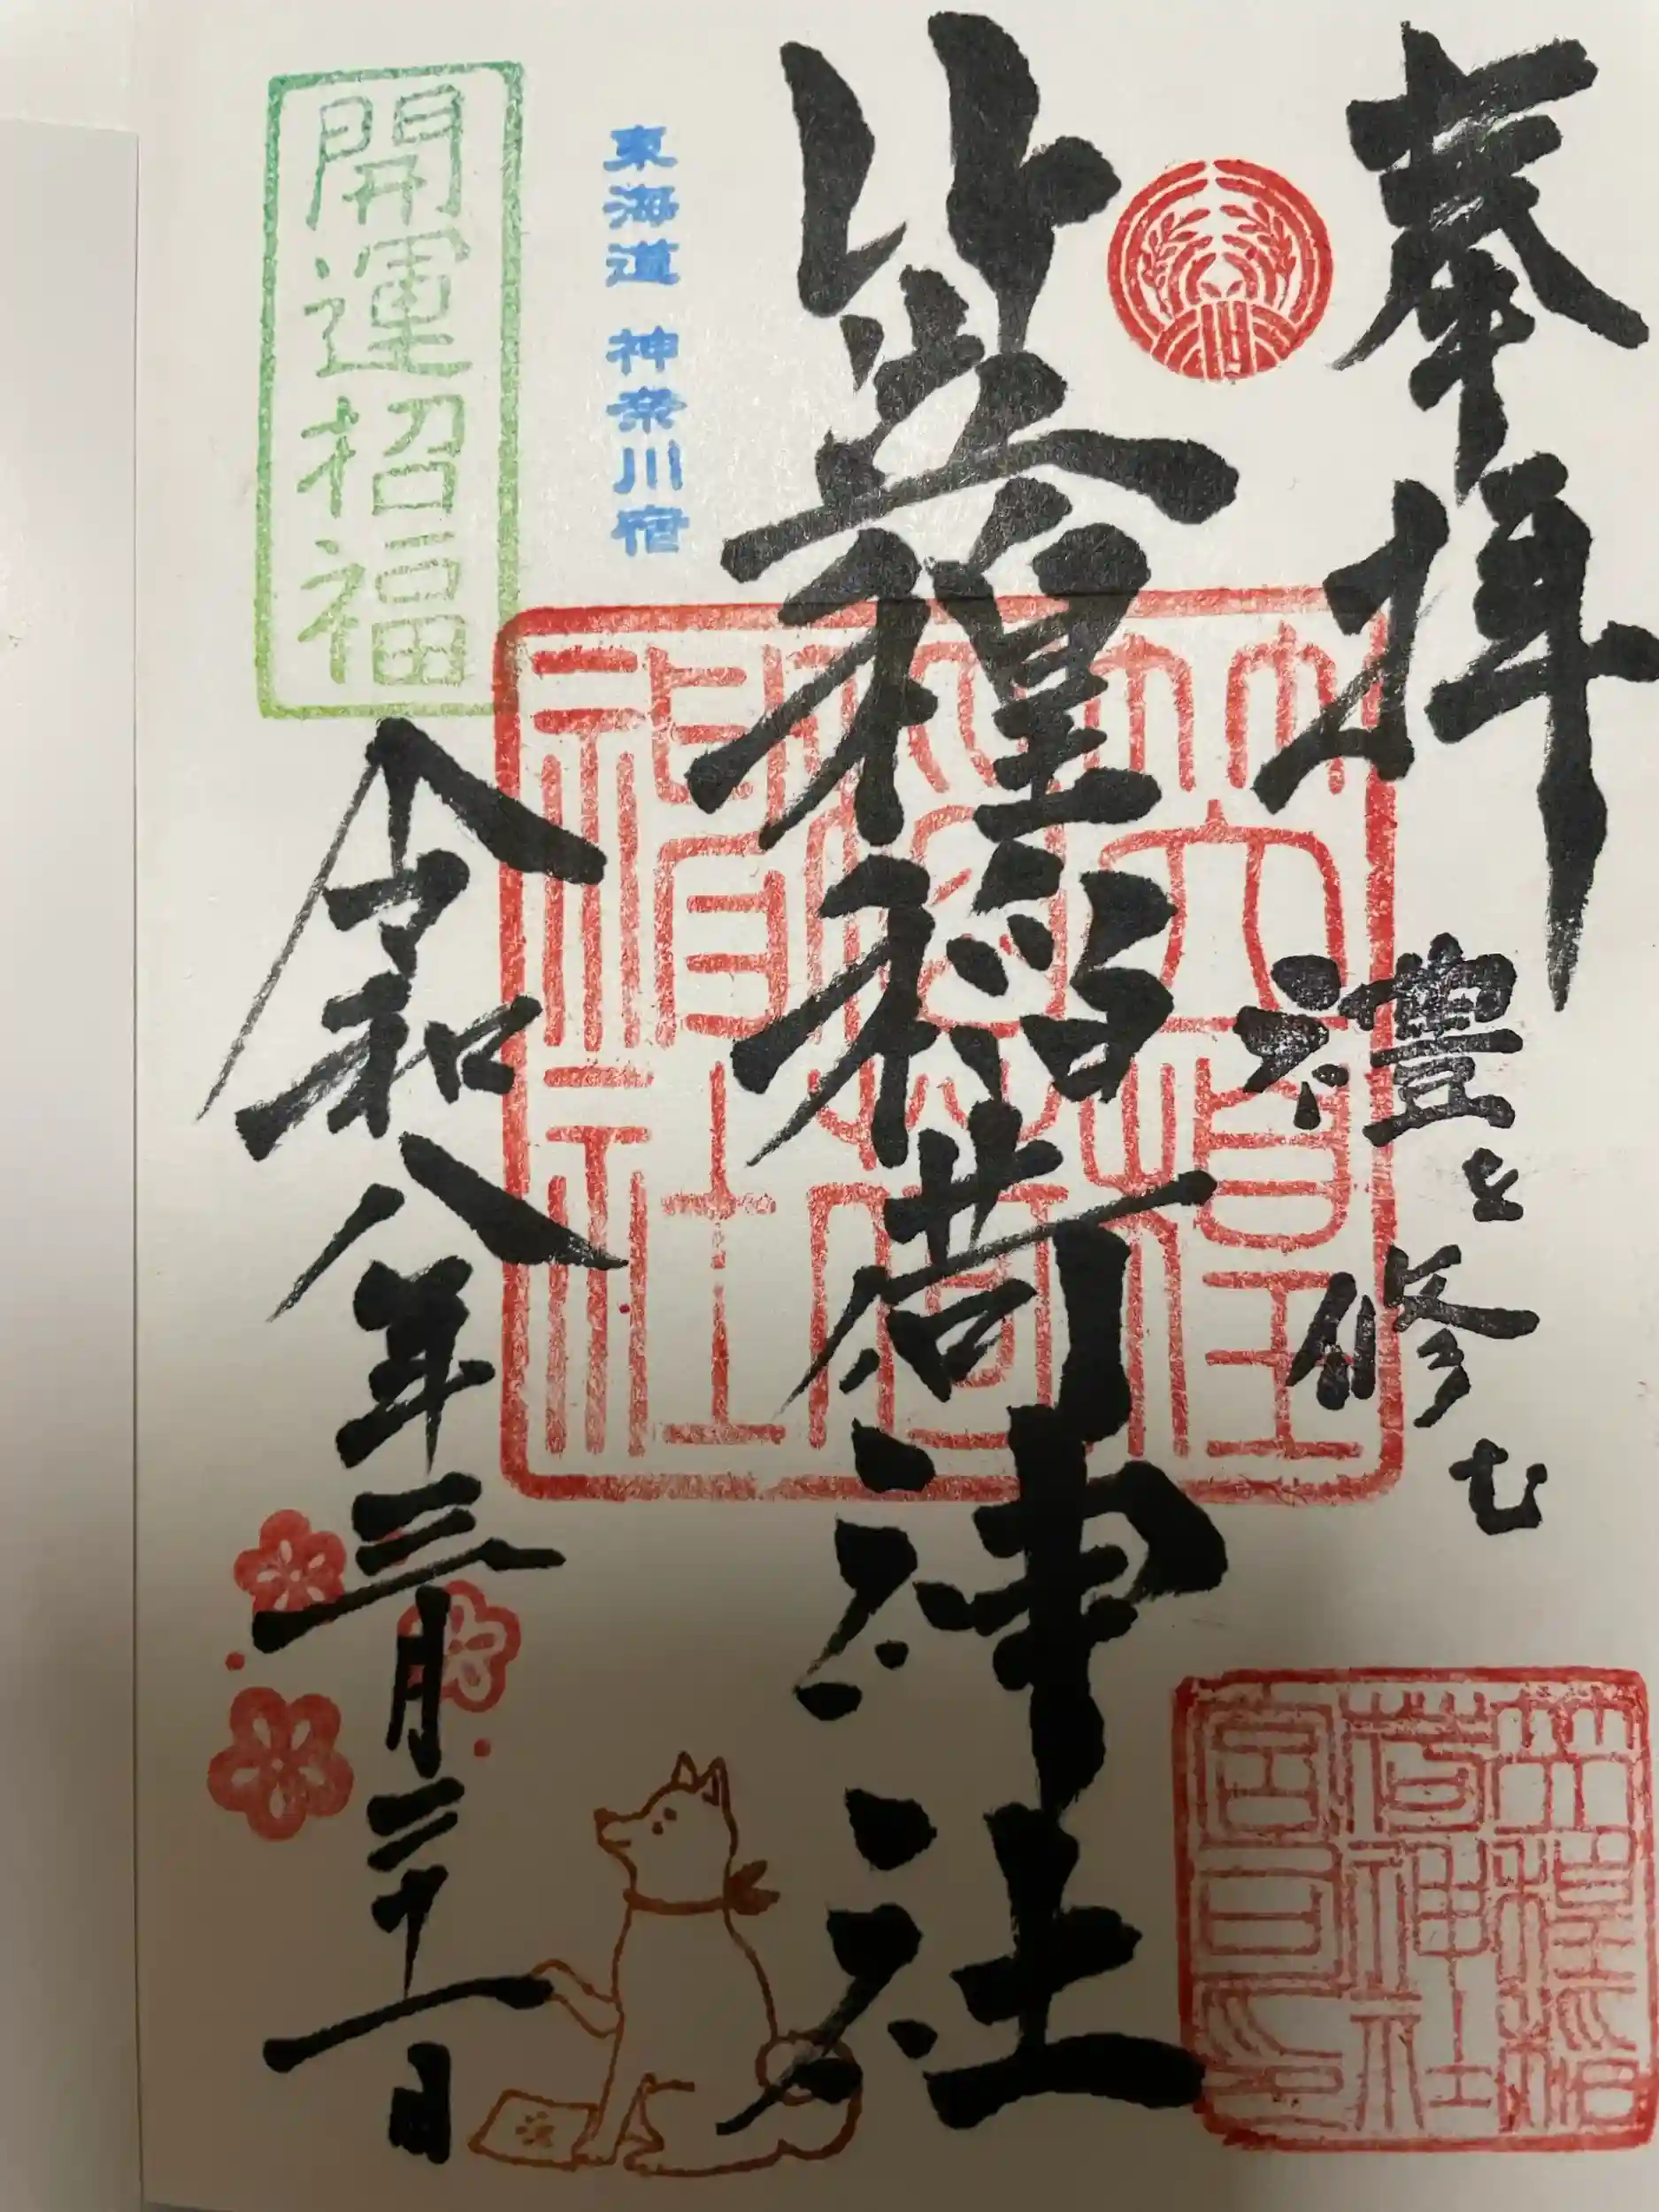 奉拝
禮を修む
笠䅣稲荷神社
東海道 神奈川宿
開運招福
令和八年三月二十一日
笠䅣
稲荷
神社
笠䅣稲
荷神社
宮司印